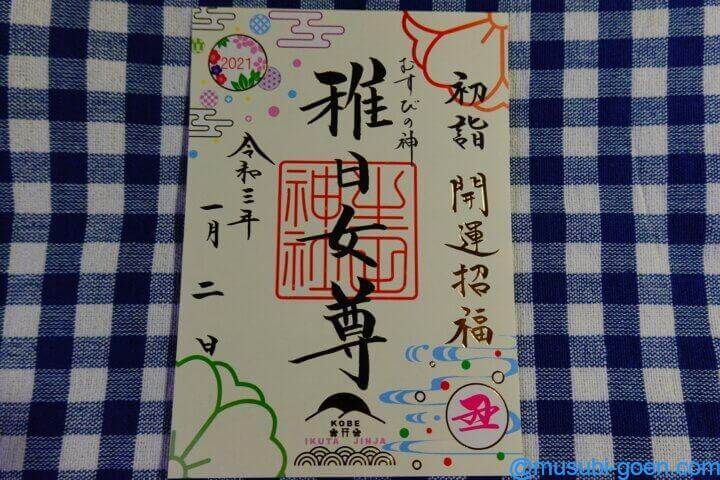 初詣 開運招福
むすびの神
稚日女尊
生田神社
2021
令和三年
一月二日
丑
KOBE
IKUTA JINJA
@musubi-goen.com